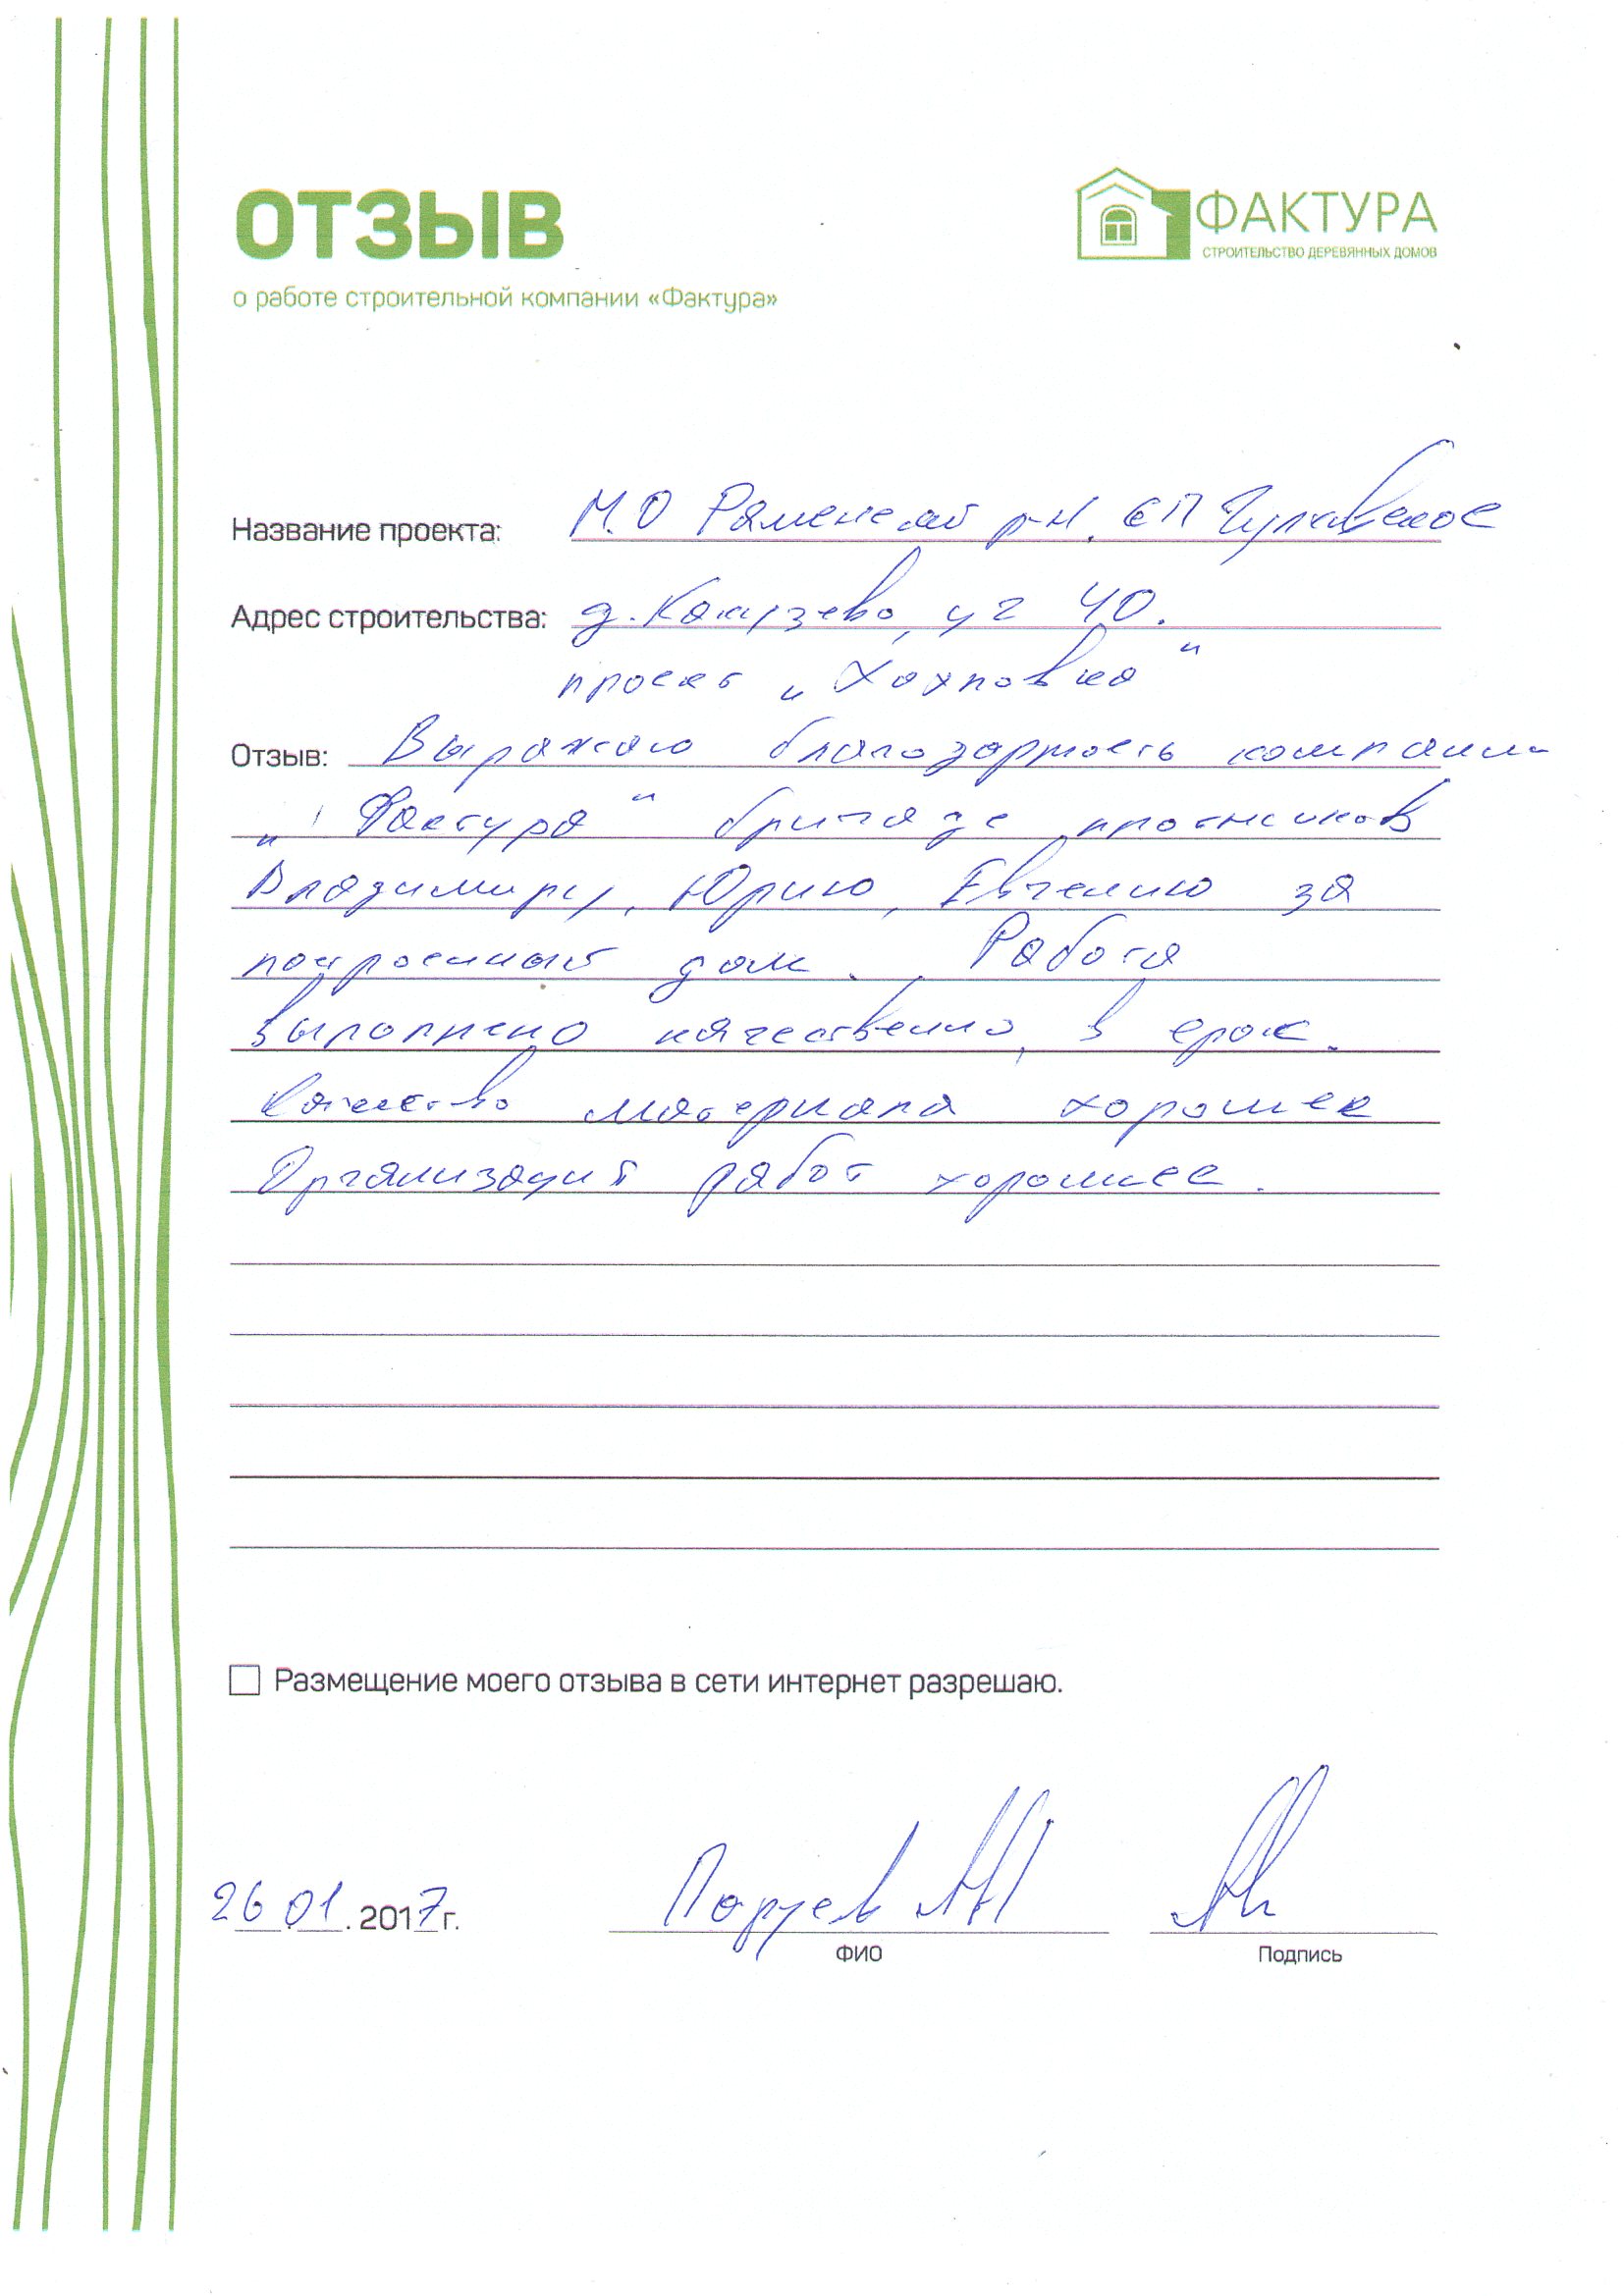 ОТЗЫВ
ФАКТУРА
СТРОИТЕЛЬСТВО ДЕРЕВЯННЫХ ДОМОВ
о работе строительной компании «Фактура»
Название проекта: М.О Раменский р-н. СП Чулковское
Адрес строительства: д. Какузево, уч 40.
проект „Хохловка“
Отзыв: Выражаю благодарность компании
„Фактура“ бригаде плотников
Владимиру, Юрию, Евгению за
построенный дом. Работа
выполнено качественно, в срок.
Качество материала хорошее
Организация работ хорошее.
Размещение моего отзыва в сети интернет разрешаю.
26.01.2017г.
ФИО
Подпись